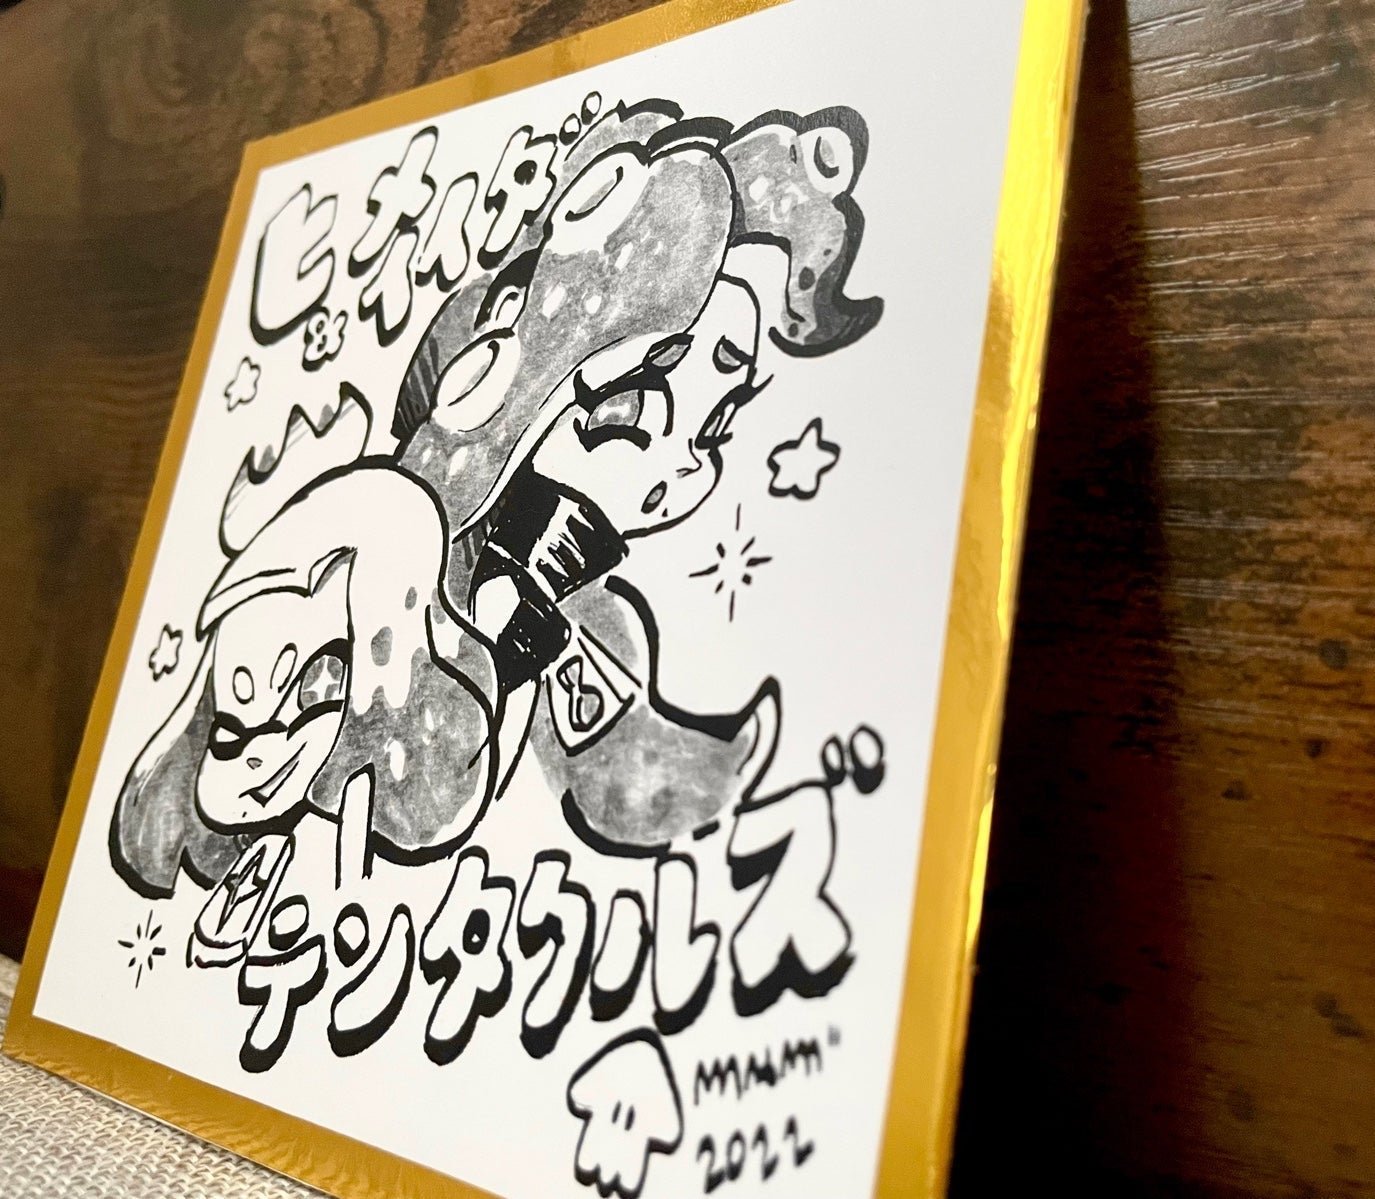 ヒメ イイダ
&
テンタクルズ
2022